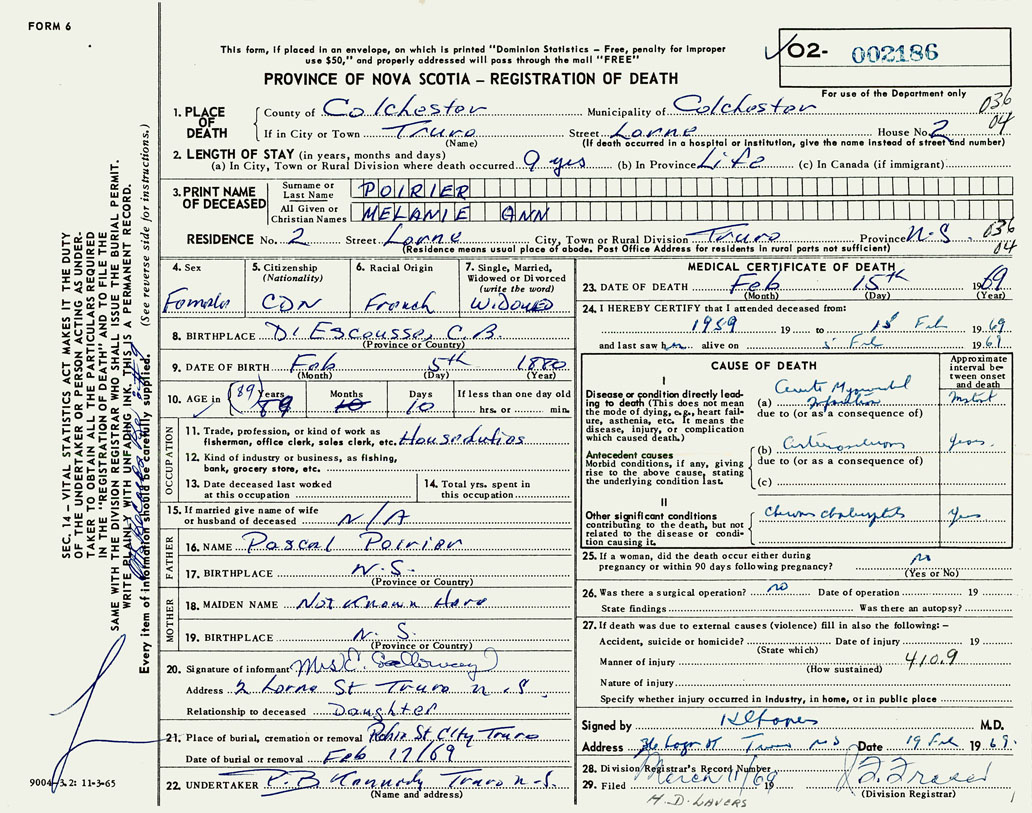 FORM 6
This form, if placed in an envelope, on which is printed "Dominion Statistics – Free, penalty for improper
use $50," and properly addressed will pass through the mail "FREE"
PROVINCE OF NOVA SCOTIA – REGISTRATION OF DEATH
O2- 002186
For use of the Department only
036
04
1. PLACE OF DEATH
County of Colchester Municipality of Colchester
If in City or Town Truro Street Lorne House No. 2
(Name) (If death occurred in a hospital or institution, give the name instead of street and number)
2. LENGTH OF STAY (in years, months and days)
(a) In City, Town or Rural Division where death occurred. 9 yrs (b) In Province Life (c) In Canada (if immigrant)
3. PRINT NAME OF DECEASED
Surname or Last Name POIRIER
All Given or Christian Names MELANIE ANN
RESIDENCE No. 2 Street Lorne City, Town or Rural Division Truro Province N.S. 036
(Residence means usual place of abode. Post Office Address for residents in rural parts not sufficient) 04
4. Sex Female
5. Citizenship (Nationality) CDN
6. Racial Origin French
7. Single, Married, Widowed or Divorced (write the word) WIDOWED
8. BIRTHPLACE D'Escousse, C.B.
(Province or Country)
9. DATE OF BIRTH Feb 5th 1880
(Month) (Day) (Year)
10. AGE in (89) Years Months Days If less than one day old
89 10 10 hrs. or min.
OCCUPATION
11. Trade, profession or kind of work as
fisherman, office clerk, sales clerk, etc. Houseduties
12. Kind of industry or business, as fishing,
bank, grocery store, etc.
13. Date deceased last worked
at this occupation
14. Total yrs. spent in
this occupation
15. If married give name of wife
or husband of deceased N/A
FATHER
16. NAME Pascal Poirier
17. BIRTHPLACE N.S.
(Province or Country)
MOTHER
18. MAIDEN NAME Not Known Here
19. BIRTHPLACE N. S.
(Province or Country)
20. Signature of informant Mrs E. Galloway
Address 2 Lorne St Truro N.S.
Relationship to deceased Daughter
21. Place of burial, cremation or removal Robie St City Truro
Date of burial or removal Feb 17/69
22. UNDERTAKER P.B Kennedy Truro N-S.
(Name and address)
MEDICAL CERTIFICATE OF DEATH
23. DATE OF DEATH Feb 15th 1969
(Month) (Day) (Year)
24. I HEREBY CERTIFY that I attended deceased from:
1959 19 to 15 Feb 1969
and last saw her alive on 5 Feb 1969
CAUSE OF DEATH
Approximate interval between onset and death
I
Disease or condition directly leading to death (This does not mean the mode of dying, e.g., heart failure, asthenia, etc. It means the disease, injury, or complication which caused death.)
(a) Acute Myocardial Infarction
due to (or as a consequence of)
Antecedent causes
Morbid conditions, if any, giving rise to the above cause, stating the underlying condition last.
(b) Arteriosclerosis years.
due to (or as a consequence of)
(c)
II
Other significant conditions
contributing to the death, but not related to the disease or condition causing it.
Chronic cholecystitis years
25. If a woman, did the death occur either during
pregnancy or within 90 days following pregnancy? no
(Yes or No)
26. Was there a surgical operation? no Date of operation 19
State findings Was there an autopsy?
27. If death was due to external causes (violence) fill in also the following:–
Accident, suicide or homicide? Date of injury 19
(State which)
Manner of injury 410.9
(How sustained)
Nature of injury
Specify whether injury occurred in industry, in home, or in public place
Signed by M.D.
Address Truro NS Date 19 Feb 1969.
28. Division Registrar's Record Number
29. Filed March 11/69 19
(Division Registrar)
H. D. LAVERS
SEC. 14 – VITAL STATISTICS ACT MAKES IT THE DUTY
OF THE UNDERTAKER OR PERSON ACTING AS UNDER-
TAKER TO OBTAIN ALL THE PARTICULARS REQUIRED
IN THE "REGISTRATION OF DEATH" AND TO FILE THE
SAME WITH THE DIVISION REGISTRAR WHO SHALL ISSUE THE BURIAL PERMIT.
WRITE PLAINLY WITH UNFADING INK. THIS IS A PERMANENT RECORD.
Every item of information should be carefully supplied. (See reverse side for instructions.)
9004-3.2: 11-3-65